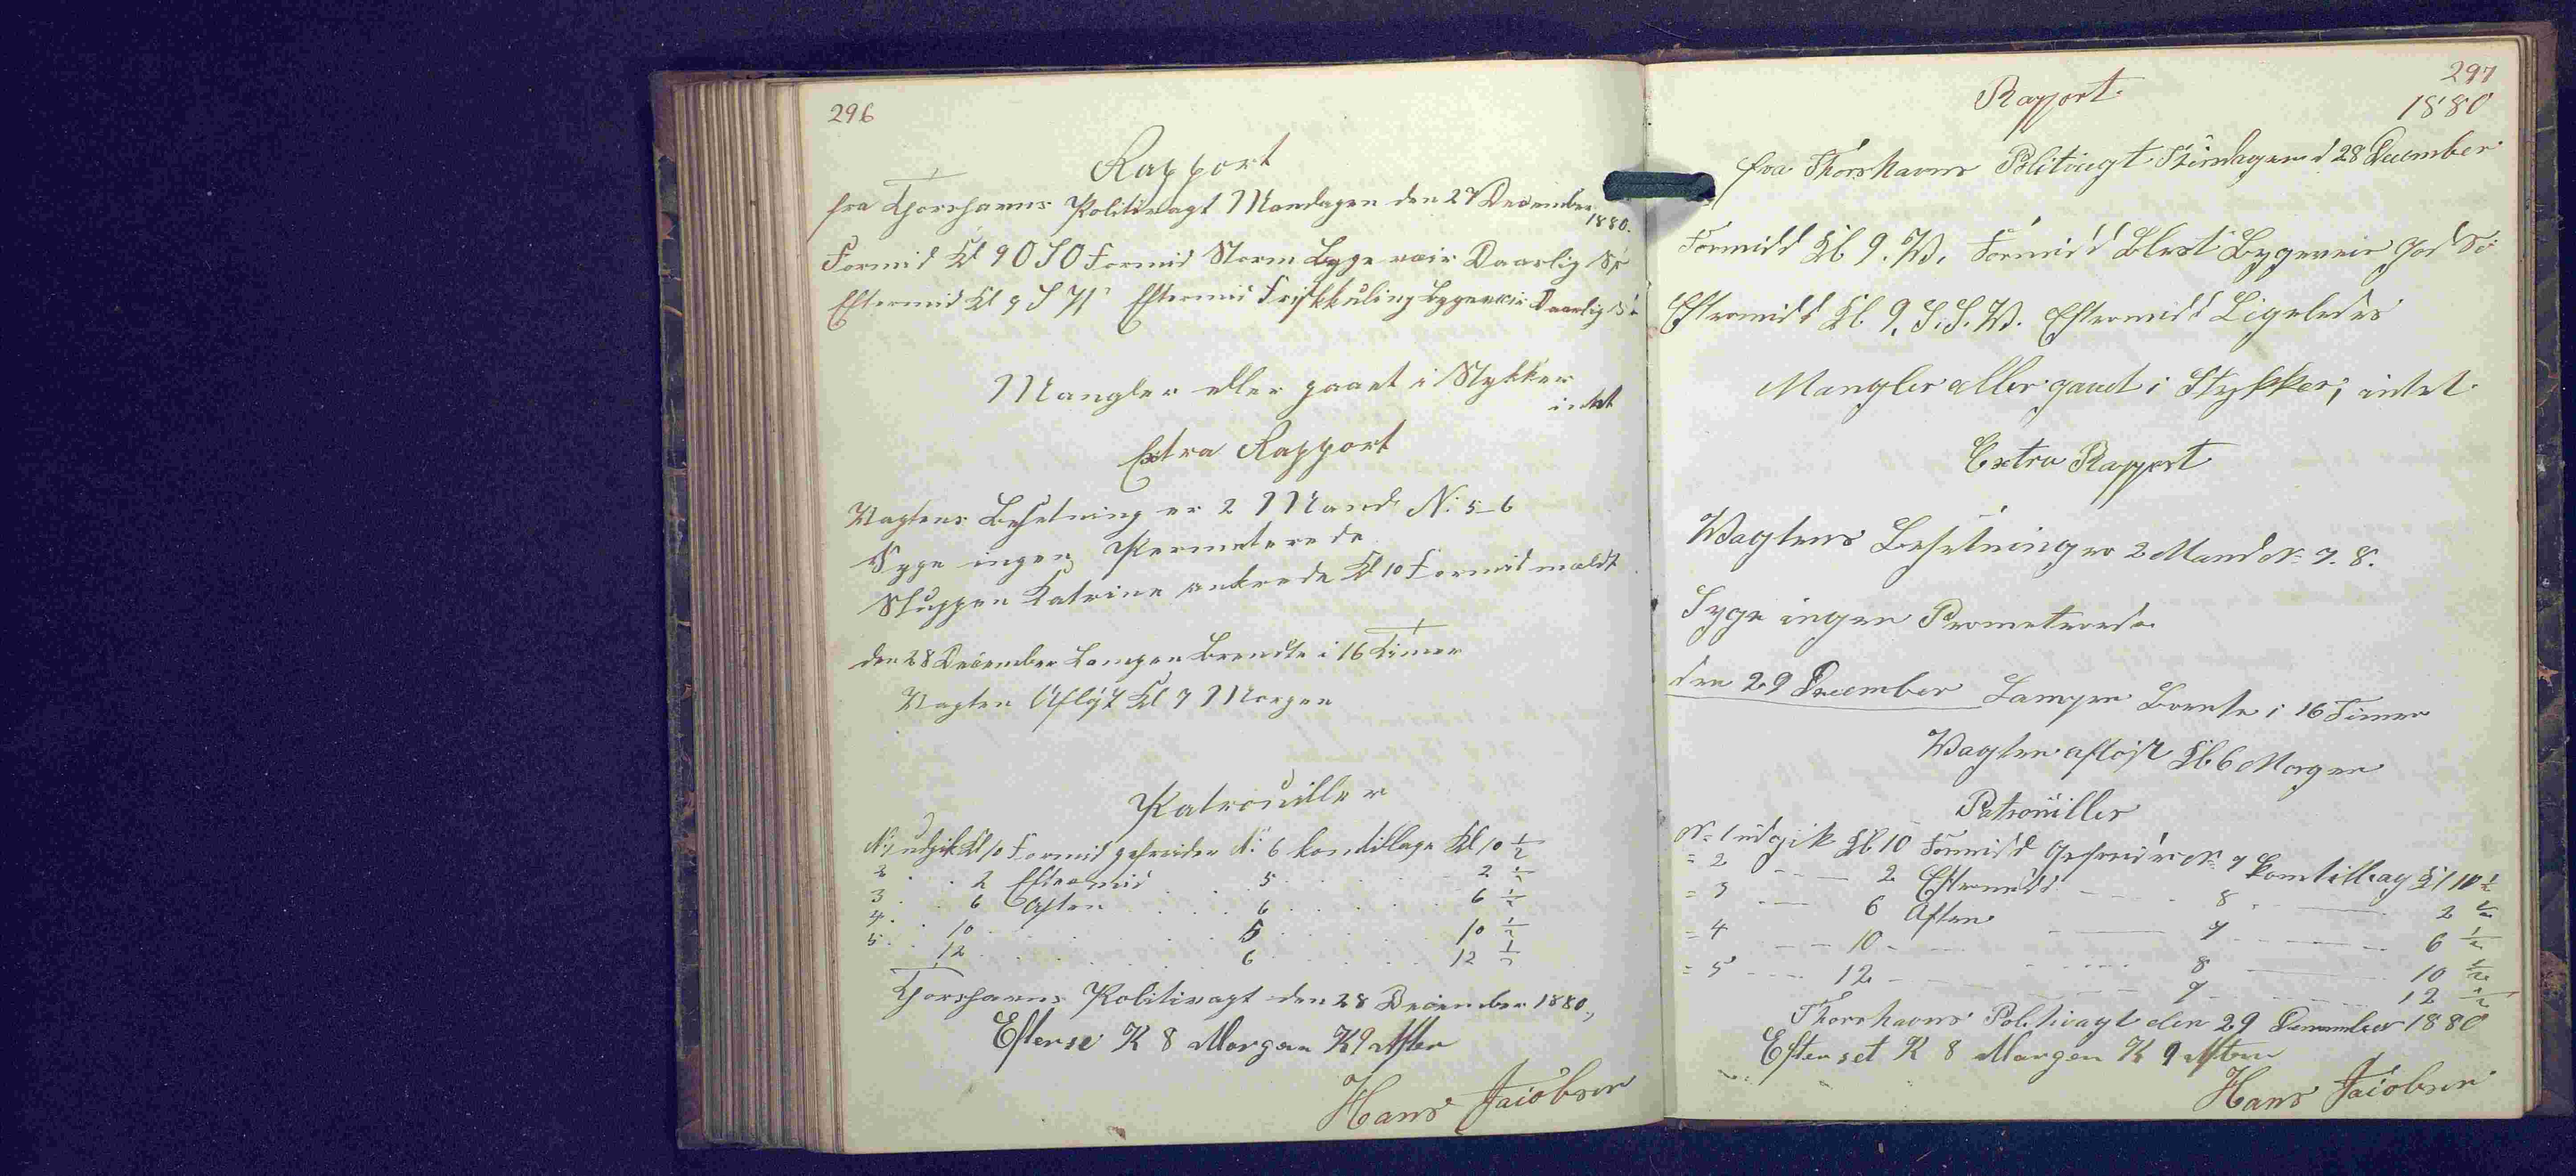 296
Rapport
fra Thorshavns Politivagt Mandagen den 27 December
1880.
Formid Kl 9 O S O Formid Storm Bygeveir Daarlig Sø
Eftermid Kl 9 S V Eftermid Friskkuling Bygeveir Daarlig Sø
Mangler eller gaaet i Stykker
intet
Extra Rapport
Vagtens Besetning er 2 Mand N: 5-6
Syge ingen Permeterede
Sluppen Katrine ankrede Kl 10 Formid meldt
den 28 December Lampen Brendte i 16 Timer
Vagten Afløst Kl 7 Morgen
Patrouiller
N: 1 udgik Kl 10 Formid gefreider N: 6 kom tilbage Kl 10 ½
2 . . 2 Eftermid . . 5 . . . 2 ½
3 . . 6 Aften . . . . 6 . . . . 6 ½
4 . . 10 . . . . . 5 . . . . . 10 ½
5 . . 12 . . . . . 6 . . . . . 12 ½
Thorshavns Politivagt den 28 December 1880.,
Efterse K 8 Morgen K 9 Aften
Hans Jacobsen
297
Rapport
1880
fra Thorshavns Politivagt Tirsdagen d 28 December
Formidd Kl. 9. W. Formidd Blest Bygeveir God Sø
Eftermidd Kl. 9. S.S.W. Eftermidd Ligeledes
Mangler eller gaaet i Stykker; intet
Extra Rapport
Wagtens Besetning er 2 Mand No 7. 8.
Syge ingen Prometerede
den 29 December Lampen Brente i 16 Timer
Wagten afløst Kl. 6 Morgen
Patrouiller
No 1 udgik Kl 10 Formidd Gefreider No 7 kom tilbag Kl 10 ½
= 2 - - - 2 Eftermidd - - - 8 - - - 2 ½
= 3 - - - 6 Aften - - - 7 - - - 6 ½
= 4 - - - 10 - - - 8 - - - 10 ½
= 5 - - - 12 - - - 7 - - - 12 ½
Thorshavns Politivagt den 29 December 1880
Efterset K 8 Morgen K 9 Aften
Hans Jacobsen